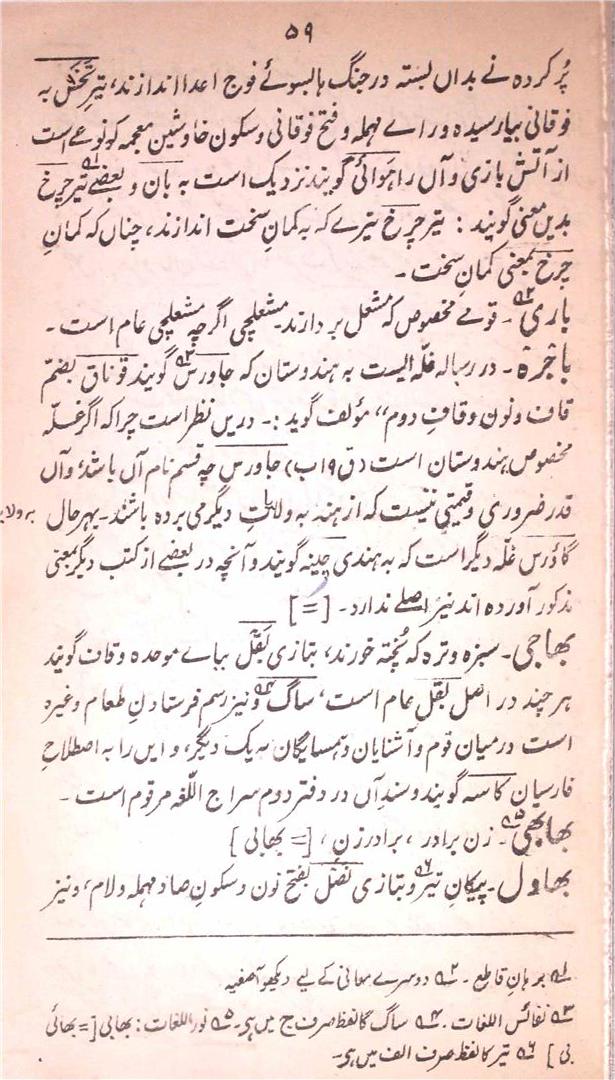 ۵۹
پُر کردہ نے بداں بستہ در جنگ ہا بسوئے فوج اعدا اندازند، تیرِ تخش بہ
فوقانی بیا رسیدہ و راے مہملہ و فتح فوقانی و سکون خا و شین معجمہ کہ نوعے است
از آتش بازی و آں را ہوائی گویند نزدیک است بہ بان و بعضے تیر چرخ
بدیں معنی گویند : تیر چرخ تیرے کہ بہ کمانِ سخت اندازند، چناں کہ کمانِ
چرخ بمعنی کمانِ سخت ۔
باری ۔ قومے مخصوص کہ مشعل بر دارند۔ مشعلچی اگرچہ مشعلچی عام است ۔
باجرہ ۔ در رسالہ غلّہ ایست بہ ہندوستان کہ جاورس گویند قوناق بضمّ
قاف و نون و قافِ دوم“ مؤلف گوید :۔ دریں نظر است چرا کہ اگر غلّہ
مخصوص ہندوستان است (ق ۱۹ ب) جاورس چہ قسم نام آں باشد، و آں
قدر ضروری و قیمتی نیست کہ از ہند بہ ولایتِ دیگر می بردہ باشند۔ بہر حال
گاؤرس غلّہ دیگر است کہ بہ ہندی چینہ گویند و آنچہ در بعضے از کتب دیگر بمعنی
مذکور آوردہ اند نیز اصلے ندارد۔ [=]
بھاجی ۔ سبزہ و ترہ کہ پُختہ خورند، بتازی بَقْل بباے موحدہ و قاف گویند
ہر چند در اصل بقل عام است، ساگ و نیز رسم فرستادنِ طعام وغیرہ
است درمیان قوم و آشنایان و ہمسایگان بہ یک دیگر، و ایں را بہ اصطلاحِ
فارسیان کاسہ گویند و سندِ آں در دفتر دوم سراج اللّغہ مرقوم است ۔
بھابھی ۔ زن برادر ، برادر زن ، [= بھابی]
بھاول ۔ پیکانِ تیر و بتازی نَصْل بفتح نون و سکونِ صاد مہملہ و لام، و نیز
۱ برہانِ قاطع ۔ ۲ دوسرے معانی کے لیے دیکھو آصفیہ
۳ نفائس اللغات ۔ ۴ ساگ کا لفظ صرف ج میں ہی۔ ۵ نور اللغات : بھابی [= بھائی
بی] ۶ تیر کا لفظ صرف الف میں ہی۔